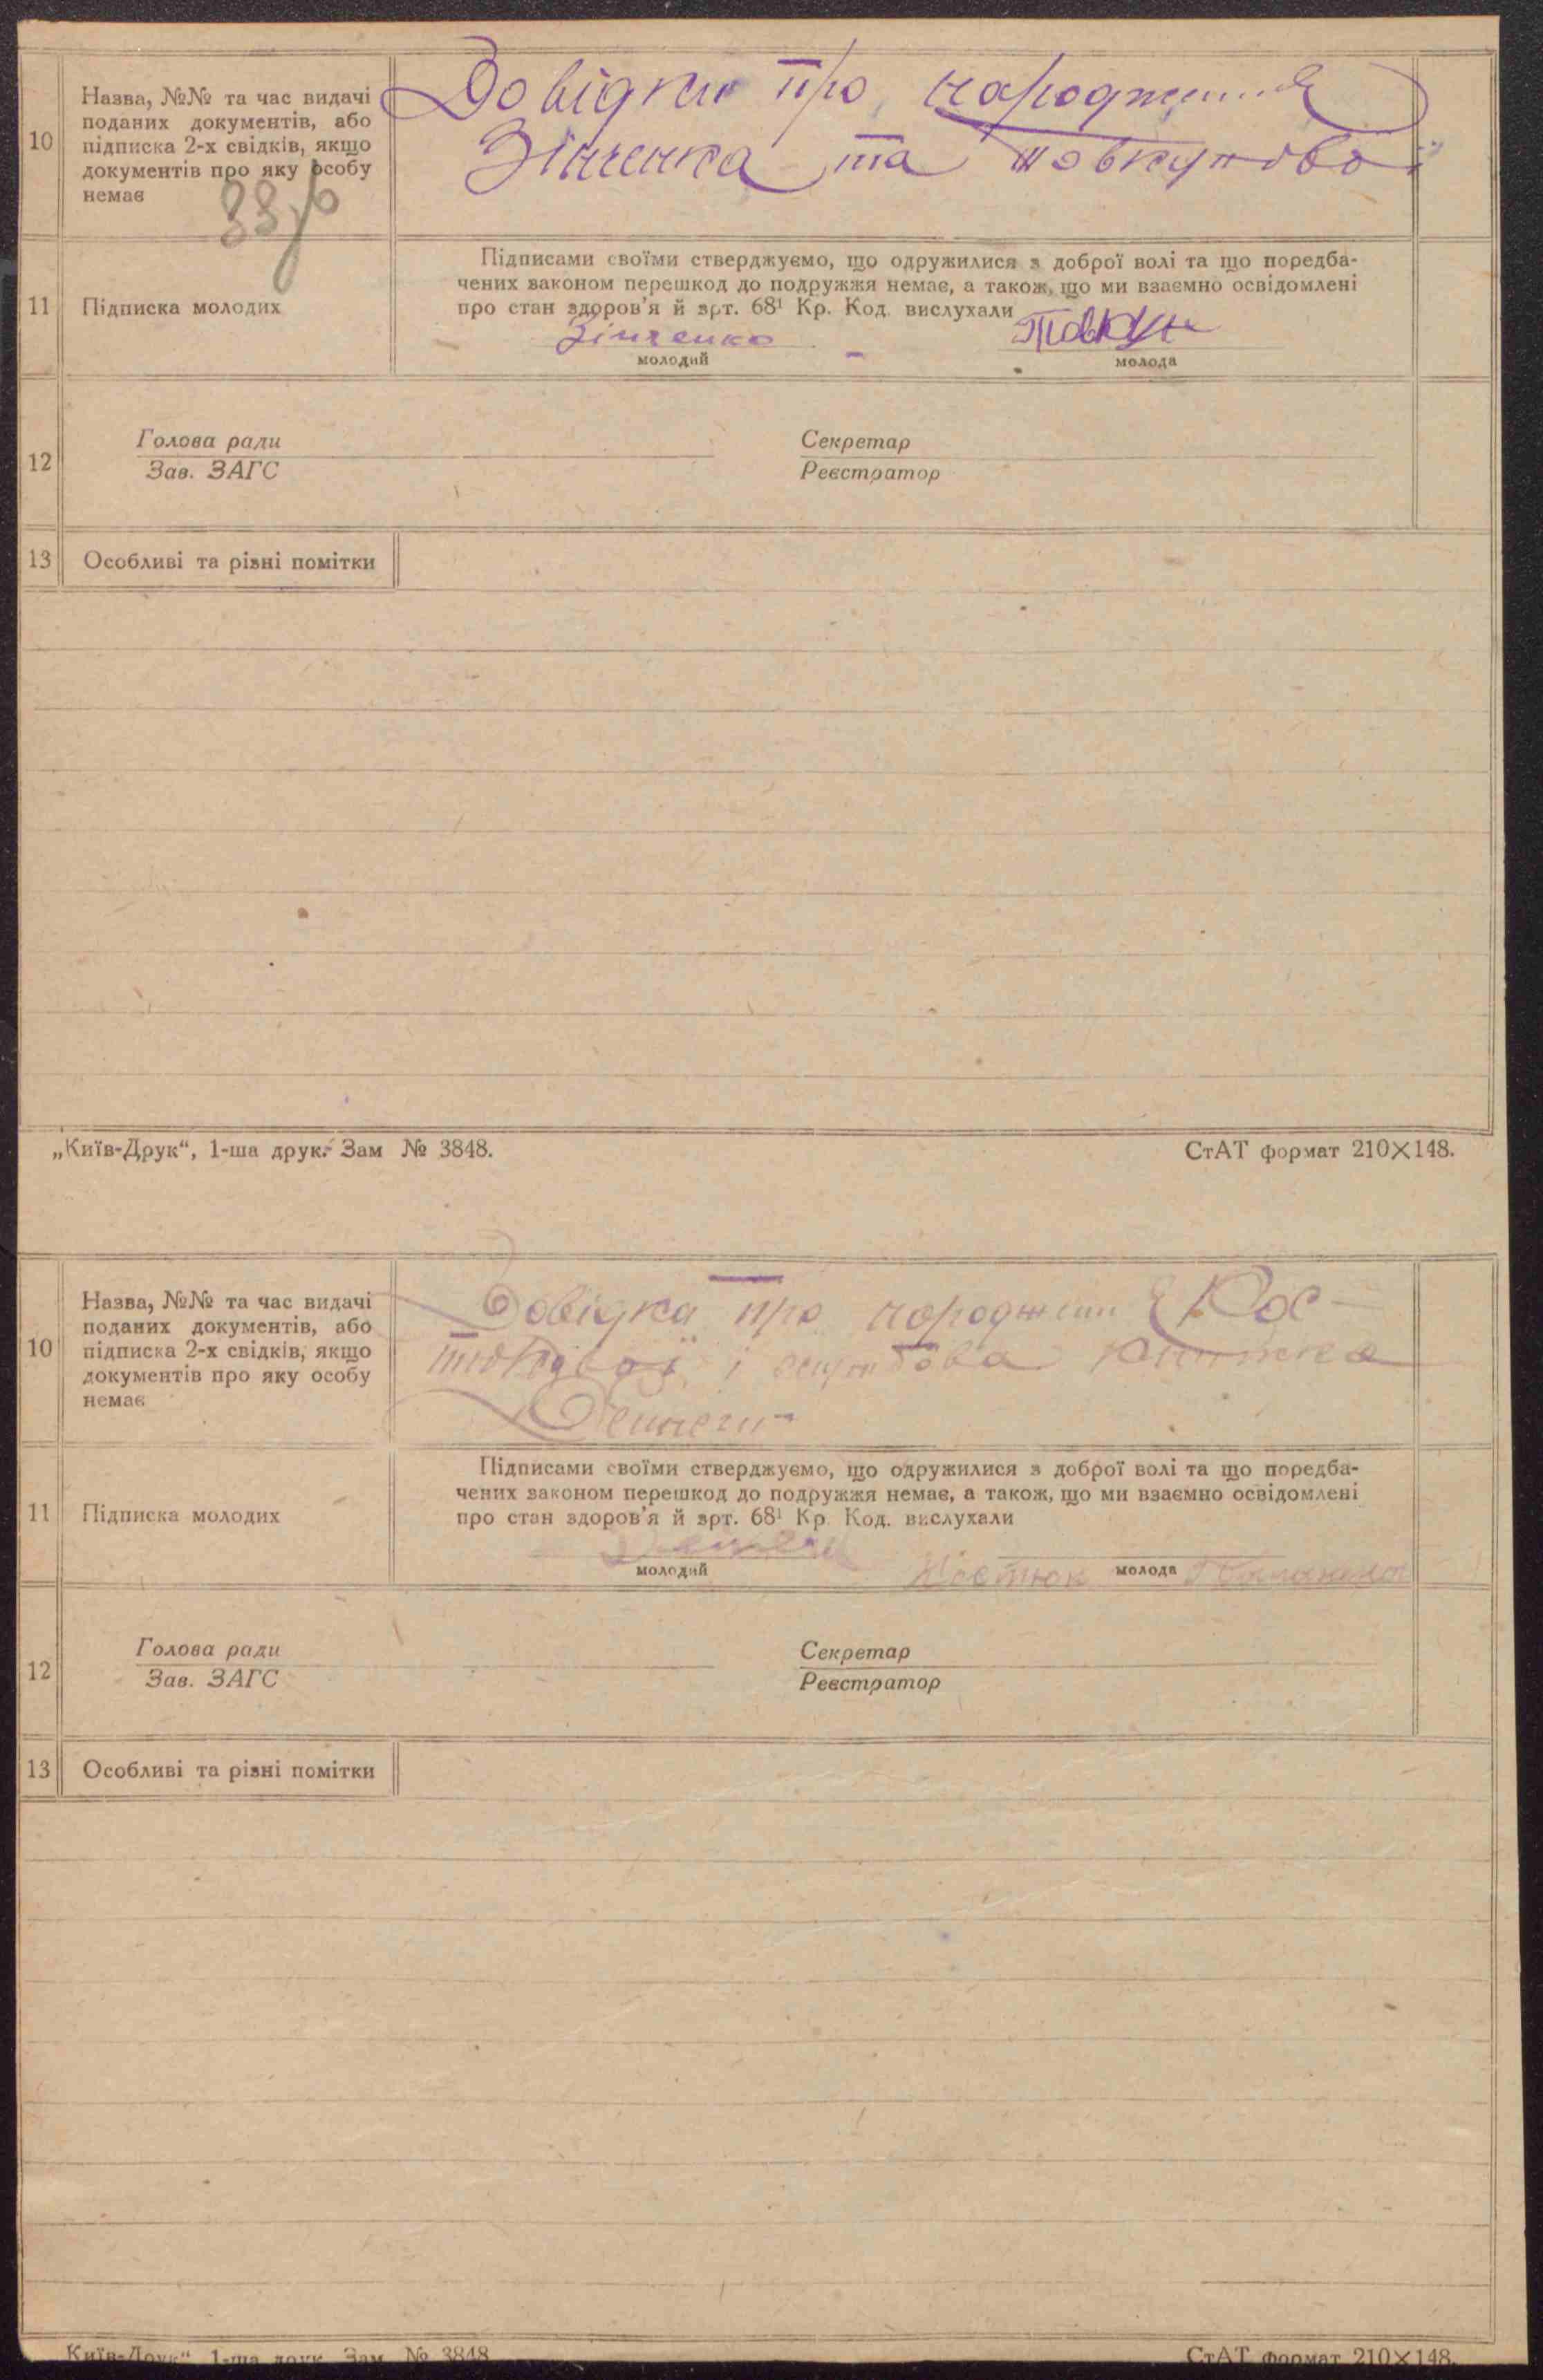 10
Назва, №№ та час видачі
поданих документів, або
підписка 2-х свідків, якщо
документів про яку особу
немає
Довідки про народження
Зінченка та Товкунової
33
11
Підписка молодих
Підписами своїми стверджуємо, що одружилися з доброї волі та що поредба-
чених законом перешкод до подружжя немає, а також, що ми взаємно освідомлені
про стан здоров'я й арт. 68¹ Кр. Код. вислухали
Зінченко
Товкун
молодий
молода
12
Голова ради
Зав. ЗАГС
Секретар
Реєстратор
13
Особливі та різні помітки
„Київ-Друк“, 1-ша друк. Зам № 3848.
СтАТ формат 210×148.
10
Назва, №№ та час видачі
поданих документів, або
підписка 2-х свідків, якщо
документів про яку особу
немає
Довідка про народження Кос-
тюкової і службова книжка
11
Підписка молодих
Підписами своїми стверджуємо, що одружилися з доброї волі та що поредба-
чених законом перешкод до подружжя немає, а також, що ми взаємно освідомлені
про стан здоров'я й арт. 68¹ Кр. Код. вислухали
молодий
Костюк молода
12
Голова ради
Зав. ЗАГС
Секретар
Реєстратор
13
Особливі та різні помітки
Київ-Друк“ 1-ша друк. Зам № 3848
СтАТ формат 210×148.